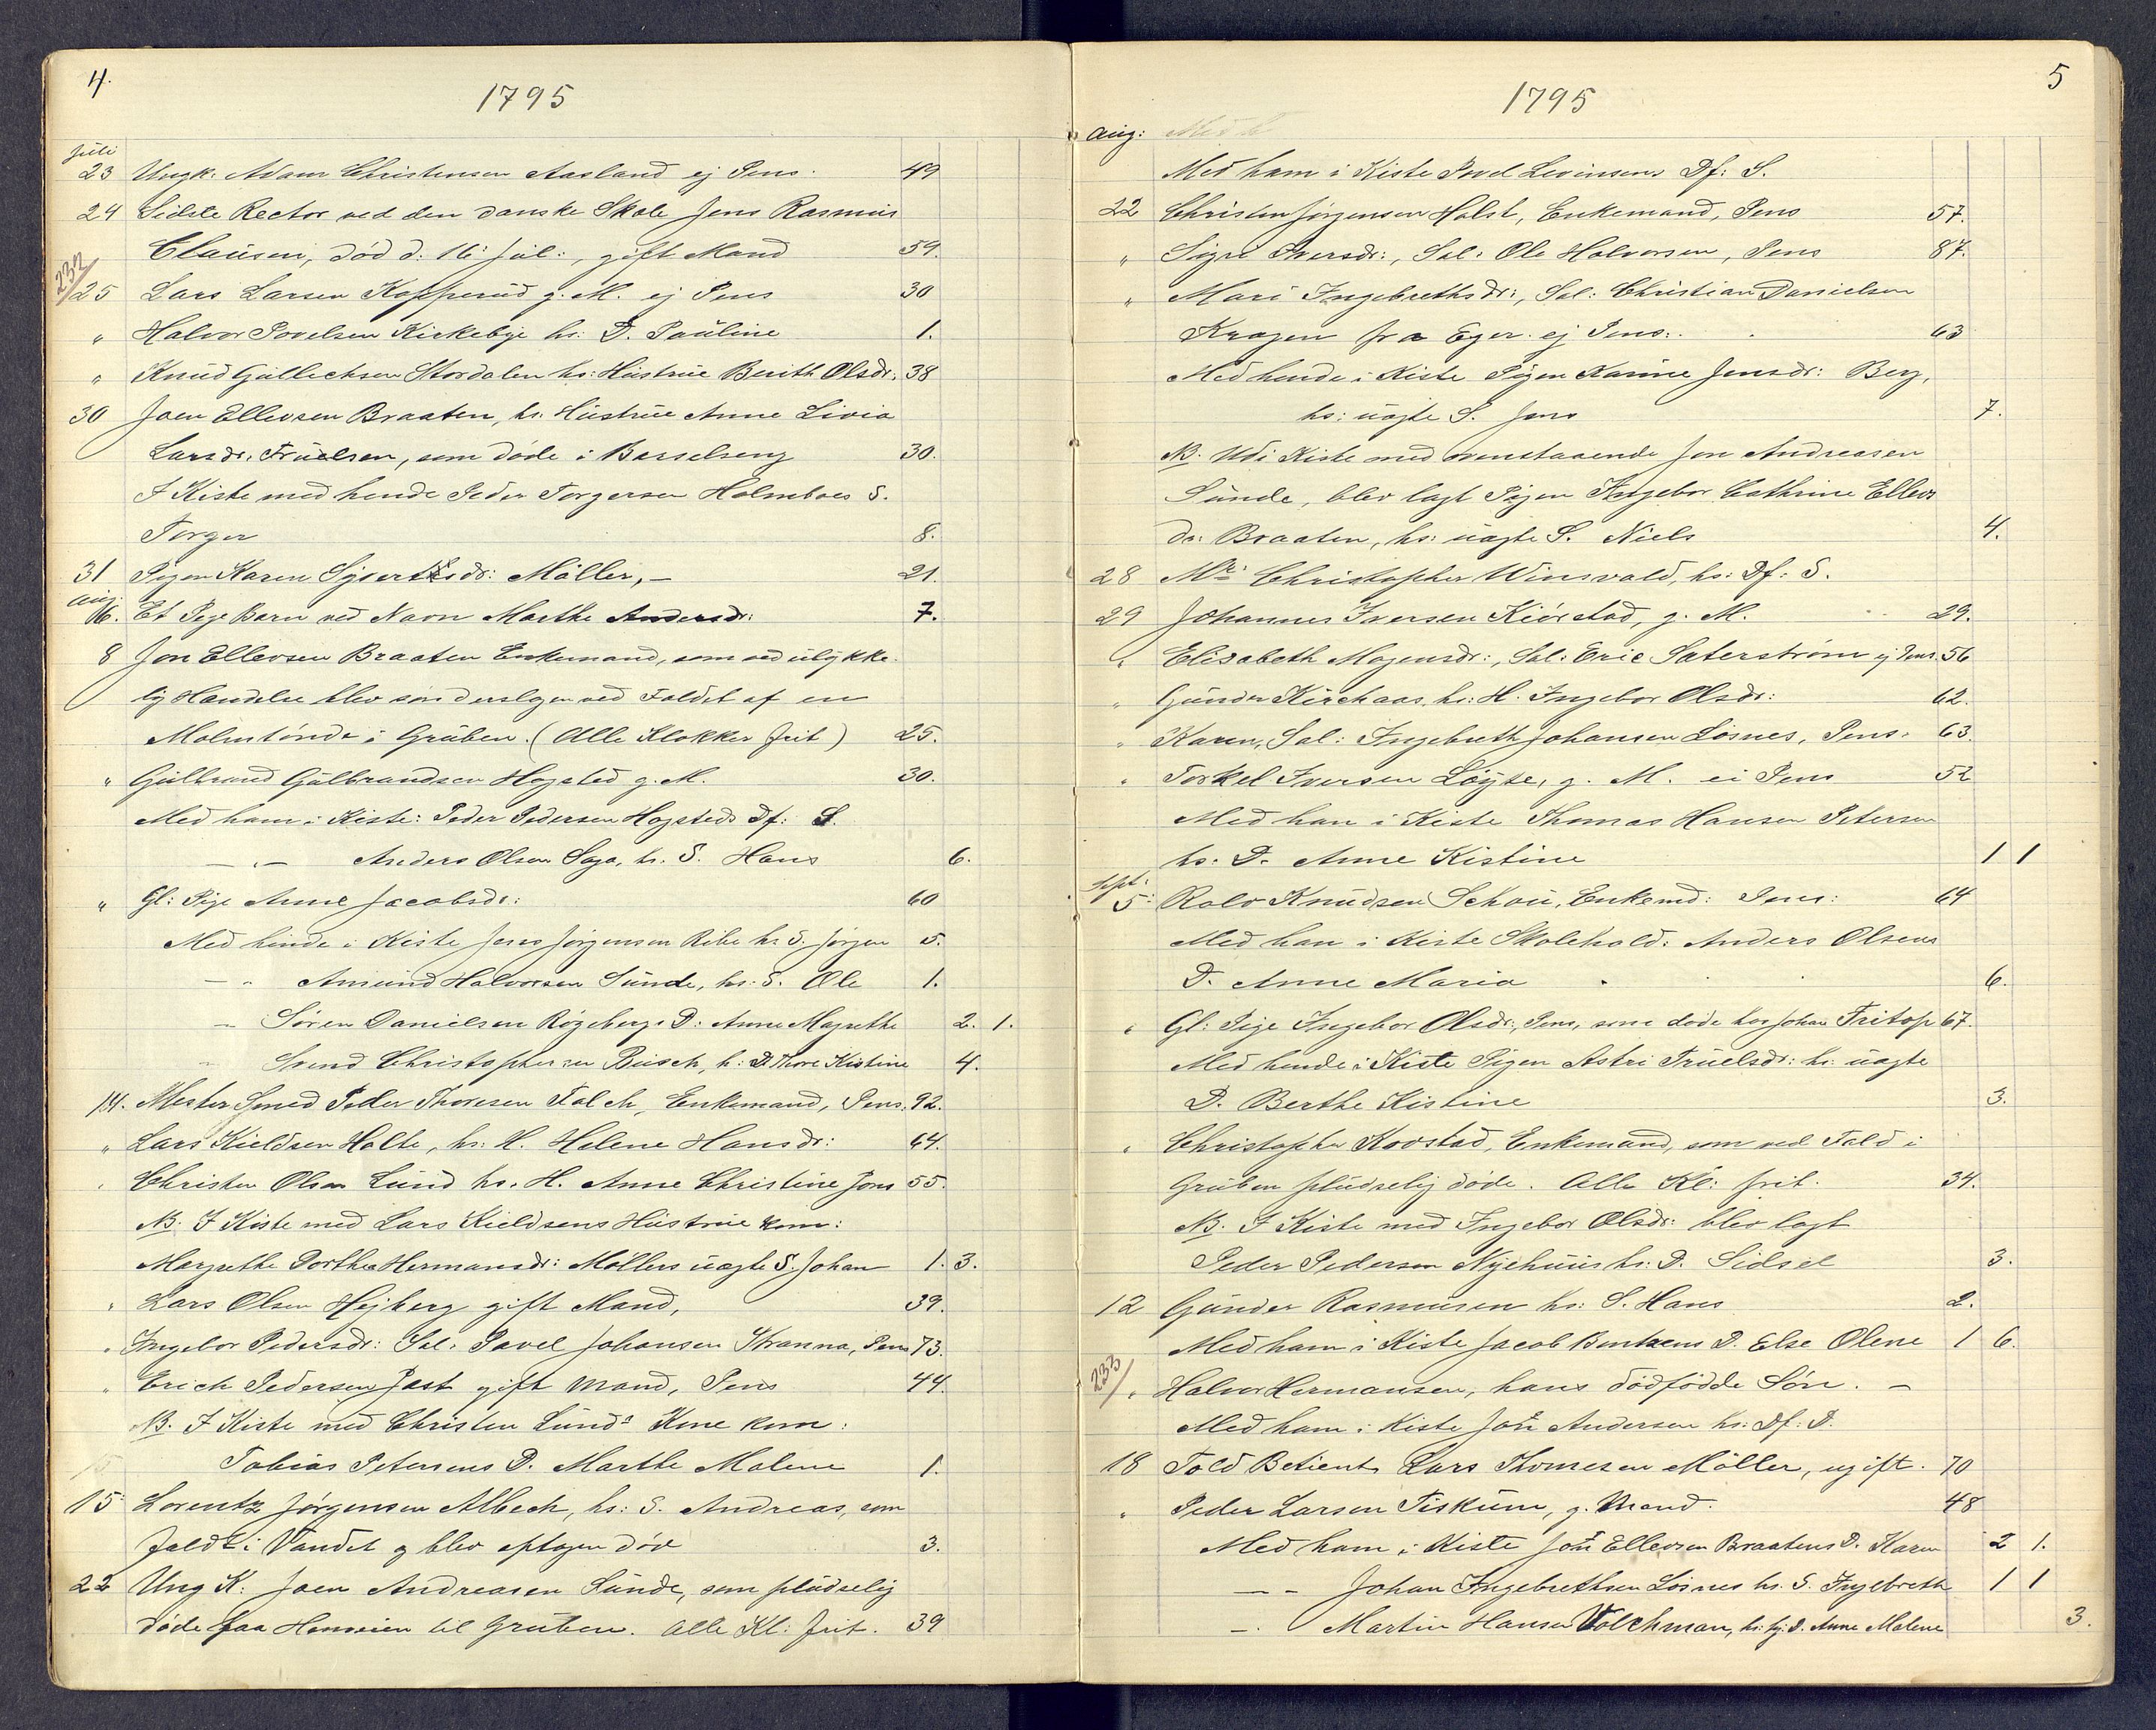 4.
1795
Juli
23 Ungk: Adam Christensen Aasland ej Pens. 49
24 Sidste Rector ved den danske Skole Jens Rasmus
Clausen, død d: 16 Jul:, gift Mand 59.
232
25 Lars Larsen Kopperud g. M. ej Pens 30
" Halvor Povelsen Kirkebye hs: D. Pauline 1.
" Knud Gullichsen Stordalen hs: Hustrue Berith Olsdr. 38
30 Joen Ellevsen Braaten, hs. Hustrue Anne Livia
Larsdr. Truelsen, som døde i Barselseng 30.
I Kiste med hende Peder Torgersen Holmboes S.
Torger 8.
31 Pigen Karen Syvertsdr: Møller, — 21.
Aug:
6. Et Pige Barn ved Navn Marthe Andersdr: 7.
8 Jon Ellevsen Braaten Enkemand, som ved ulykke-
lig Hændelse blev sønderslagen ved Faldet af en
Malmtønde i Gruben. (Alle Klokker frit) 25.
" Gulbrand Gulbrandsen Hogsted g. M. 30.
Med ham i Kiste: Peder Pedersen Hogsteds Df: S.
— " — Anders Olsen Saga, hs. S. Hans 6.
" Gl: Pige Anne Jacobsdr: 60
Med hinde i Kiste Jens Jørgensen Ribe hs S. Jørgen 5.
— " Amund Halvorsen Sunde, hs: S. Ole 1.
— Søren Danielsen Røgeberg: D: Anne Magrethe 2. 1.
Svend Christophersen Busch, h: D Thore Kistine 4.
14. Mester Smed Peder Thoresen Falch, Enkemand, Pens. 92.
" Lars Kieldsen Holte, hs: H. Helene Hansdr: 64.
Christen Olsen Lund hs. H. Anne Christine Jons 55.
NB. I Kiste med Lars Kieldsens Hustrue kom:
Margrethe Dorthea Hermansdr: Møllers uægte S. Johan 1. 3.
" Lars Olsen Hejberg gift Mand, 39.
" Ingebor Pedersdr: Sal. Pavel Johansen Stranna, Pens 73.
" Erich Pedersen Fast gift Mand, Pens 44.
NB. I Kiste med Christen Lunds Kone kom:
Tobias Petersens D. Marthe Malene 1.
15 Lorentz Jørgensen Albech, hs: S. Andreas, som
faldt i Vandet og blev optagen død 3.
22 Ung K: Joen Andreasen Sunde, som pludselig
døde paa Henveien til Gruben. Alle Kl: frit. 39
5
1795
Aug:
Med ham i Kiste Povel Levinsens Df: S.
22 Christen Jørgensen Holst, Enkemand, Pens 57.
" Sigri Iversdr:, Sal: Ole Halvorsen, Pens 87.
" Mari Ingebrethsdr:, Sal: Christian Danielsen
Kragen fra Eger. ej Pens: 63
Med hende i Kiste Pigen Karine Jensdr: Berg,
hs: uægte S. Jens 7.
NB. Udi Kiste med ovenstaaende Jon Andreasen
Sunde, blev lagt Pigen Ingebor Cathrine Ellevs
dr: Braaten, hs: uægte S. Niels 4.
28 Mr: Christopher Winsvold, hs: Df: S.
29 Johannes Iversen Kiørstad, g. M. 29.
" Elisabeth Mogensdr:, Sal: Eric Sæterstrøm ej Pens. 56
" Gunder Kirchaas, hs: H. Ingebor Olsdr: 62.
" Karen, Sal: Ingebreth Johansen Løsnes, Pens. 63.
" Torkel Iversen Løyte, g. M. ei Pens 52
Med han i Kiste Thomas Hansen Petersen
hs. D. Anne Kistine 1 1
Sept:
5: Rolv Knudsen Schou, Enkemd: Pens: 64
Med han i Kiste Skolehold: Anders Olsens
D. Anne Maria 6.
" Gl: Pige Ingebor Olsdr:, Pens, som døde hos Johan Fritsop 67.
Med hende i Kiste Pigen Astri Truelsdr: hs: uægte
D. Berthe Kistine 3.
" Christopher Kovstad, Enkemand, som ved Fald i
Gruben pludselig døde. Alle Kl: frit. 34.
NB. I Kiste med Ingebor Olsdr: blev lagt
Peder Pedersen Nyehuus hs: D. Sidsel 3.
12 Gunder Rasmusen hs: S. Hans 2.
Med ham i Kiste Jacob Bentsens D. Else Olene 1 6.
233
" Halvor Hermansen, hans dödfödde Søn. —
Med ham i Kiste Jon Andersen hs: Df: D.
18 Told Betient Lars Thomesen Møller, ugift. 70
" Peder Larsen Fiskum, g. Mand. 48
Med ham i Kiste Jon Ellevsen Braatens D. Karen 2 1.
— " Johan Ingebrethsen Løsnes hs. S. Ingebreth 1 1
— " Martin Hansen Volchman, hs: D. Anne Malene 3.